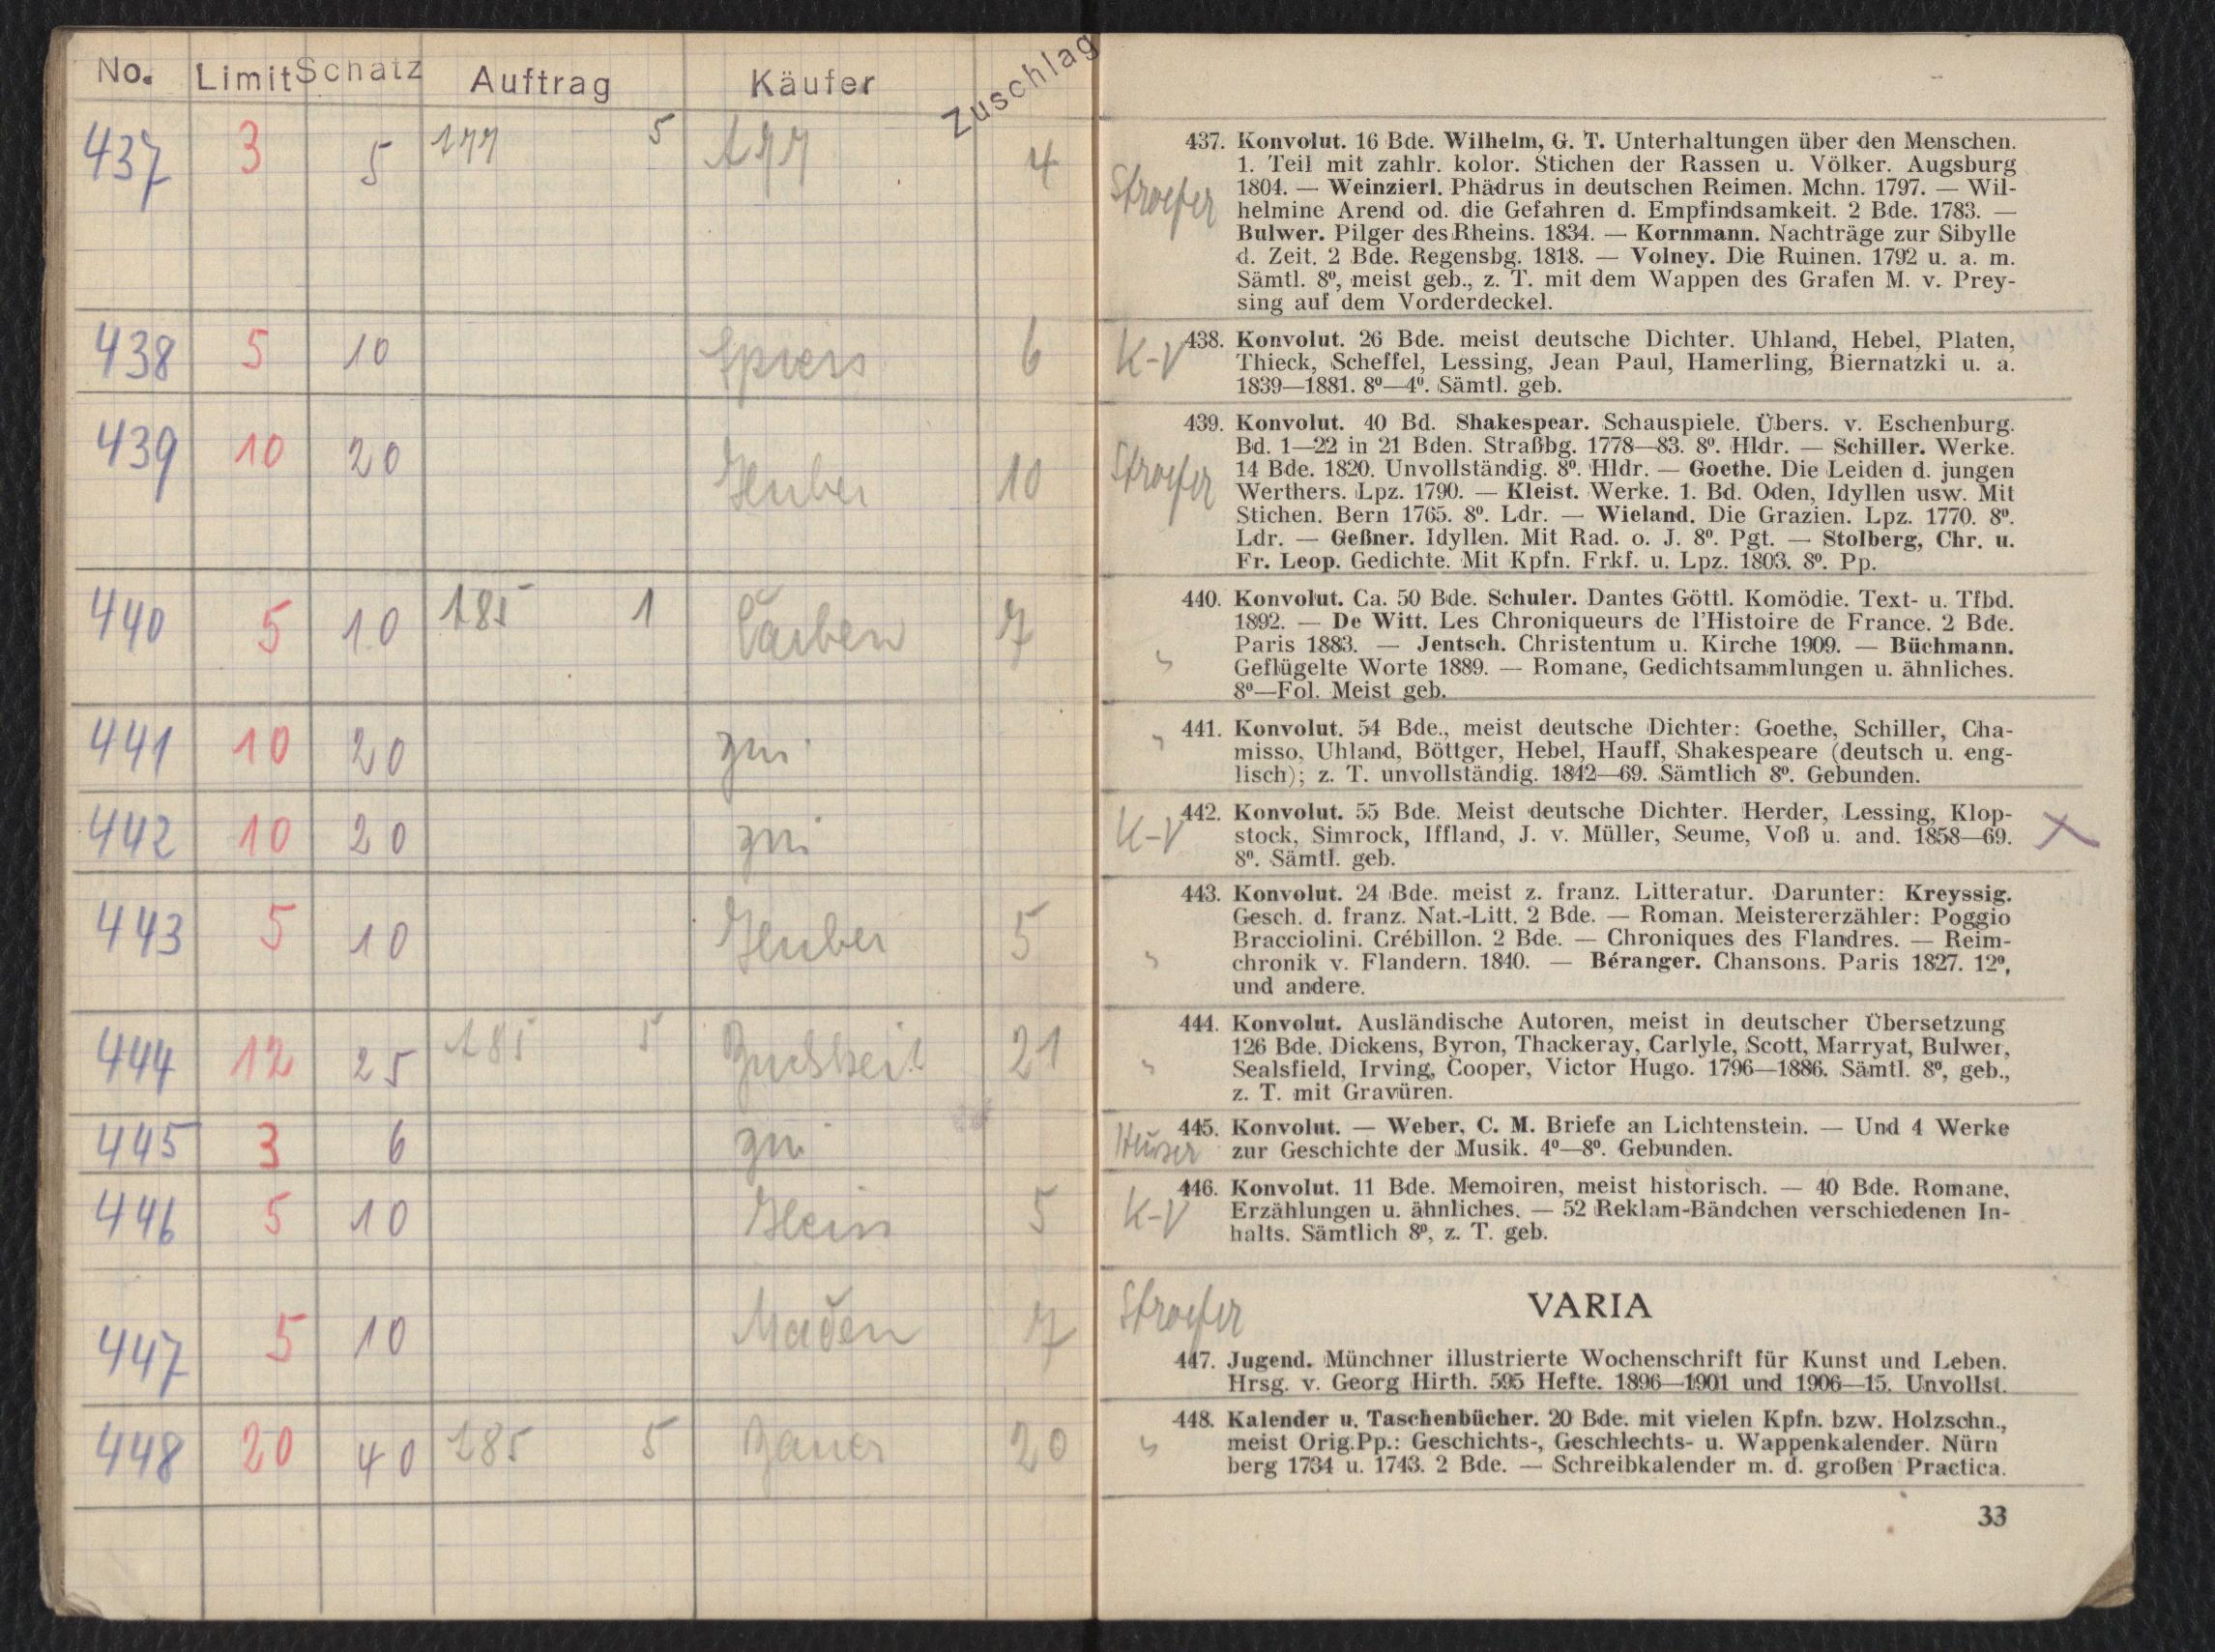 No. Limit Schatz Auftrag Käufer Zuschlag
437 3 5 177 5 A 77 4
438 5 10 Spiers 6
439 10 20 Huber 10
440 5 10 185 1 7
441 10 20 zur
442 10 20 zur
443 5 10 Huber 5
444 12 25 185 5 21
445 3 6 zur
446 5 10 Hein 5
447 5 10 7
448 20 40 185 5 Bauer 20
437. Konvolut. 16 Bde. Wilhelm, G. T. Unterhaltungen über den Menschen.
1. Teil mit zahlr. kolor. Stichen der Rassen u. Völker. Augsburg
Stroefer
1804. — Weinzierl. Phädrus in deutschen Reimen. Mchn. 1797. — Wil-
helmine Arend od. die Gefahren d. Empfindsamkeit. 2 Bde. 1783. —
Bulwer. Pilger des Rheins. 1834. — Kornmann. Nachträge zur Sibylle
d. Zeit. 2 Bde. Regensbg. 1818. — Volney. Die Ruinen. 1792 u. a. m.
Sämtl. 8º, meist geb., z. T. mit dem Wappen des Grafen M. v. Prey-
sing auf dem Vorderdeckel.
K-V 438. Konvolut. 26 Bde. meist deutsche Dichter. Uhland, Hebel, Platen,
Thieck, Scheffel, Lessing, Jean Paul, Hamerling, Biernatzki u. a.
1839—1881. 8º—4º. Sämtl. geb.
439. Konvolut. 40 Bd. Shakespear. Schauspiele. Übers. v. Eschenburg.
Bd. 1—22 in 21 Bden. Straßbg. 1778—83. 8º. Hldr. — Schiller. Werke.
Stroefer
14 Bde. 1820. Unvollständig. 8º. Hldr. — Goethe. Die Leiden d. jungen
Werthers. Lpz. 1790. — Kleist. Werke. 1. Bd. Oden, Idyllen usw. Mit
Stichen. Bern 1765. 8º. Ldr. — Wieland. Die Grazien. Lpz. 1770. 8º.
Ldr. — Geßner. Idyllen. Mit Rad. o. J. 8º. Pgt. — Stolberg, Chr. u.
Fr. Leop. Gedichte. Mit Kpfn. Frkf. u. Lpz. 1803. 8º. Pp.
440. Konvolut. Ca. 50 Bde. Schuler. Dantes Göttl. Komödie. Text- u. Tfbd.
1892. — De Witt. Les Chroniqueurs de l'Histoire de France. 2 Bde.
Paris 1883. — Jentsch. Christentum u. Kirche 1909. — Büchmann.
Geflügelte Worte 1889. — Romane, Gedichtsammlungen u. ähnliches.
8º—Fol. Meist geb.
441. Konvolut. 54 Bde., meist deutsche Dichter: Goethe, Schiller, Cha-
misso, Uhland, Böttger, Hebel, Hauff, Shakespeare (deutsch u. eng-
lisch); z. T. unvollständig. 1842—69. Sämtlich 8º. Gebunden.
K-V 442. Konvolut. 55 Bde. Meist deutsche Dichter. Herder, Lessing, Klop-
stock, Simrock, Iffland, J. v. Müller, Seume, Voß u. and. 1858—69. X
8º. Sämtl. geb.
443. Konvolut. 24 Bde. meist z. franz. Litteratur. Darunter: Kreyssig.
Gesch. d. franz. Nat.-Litt. 2 Bde. — Roman. Meistererzähler: Poggio
Bracciolini. Crébillon. 2 Bde. — Chroniques des Flandres. — Reim-
chronik v. Flandern. 1840. — Béranger. Chansons. Paris 1827. 12º,
und andere.
444. Konvolut. Ausländische Autoren, meist in deutscher Übersetzung
126 Bde. Dickens, Byron, Thackeray, Carlyle, Scott, Marryat, Bulwer,
Sealsfield, Irving, Cooper, Victor Hugo. 1796—1886. Sämtl. 8º, geb.,
z. T. mit Gravüren.
445. Konvolut. — Weber, C. M. Briefe an Lichtenstein. — Und 4 Werke
zur Geschichte der Musik. 4º—8º. Gebunden.
K-V 446. Konvolut. 11 Bde. Memoiren, meist historisch. — 40 Bde. Romane,
Erzählungen u. ähnliches. — 52 Reklam-Bändchen verschiedenen In-
halts. Sämtlich 8º, z. T. geb.
Stroefer
VARIA
447. Jugend. Münchner illustrierte Wochenschrift für Kunst und Leben.
Hrsg. v. Georg Hirth. 595 Hefte. 1896—1901 und 1906—15. Unvollst.
448. Kalender u. Taschenbücher. 20 Bde. mit vielen Kpfn. bzw. Holzschn.,
meist Orig.Pp.: Geschichts-, Geschlechts- u. Wappenkalender. Nürn
berg 1734 u. 1743. 2 Bde. — Schreibkalender m. d. großen Practica.
33